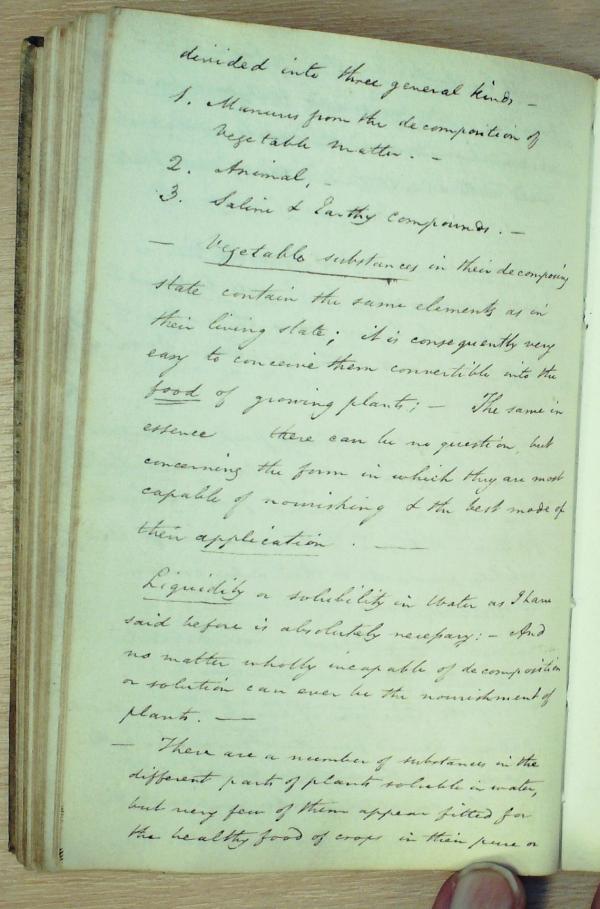 divided into three general kinds –
1. Manures from the decomposition of
vegetable matter. –
2. Animal, –
3. Saline & Earthy compounds. –
– Vegetable substances in their decomposing
state contain the same elements as in
their living state; it is consequently very
easy to conceive them convertible into the
food of growing plants; – The same in
essence there can be no question, but
concerning the form in which they are most
capable of nourishing & the best mode of
their application. —
Liquidity or solubility in water as I have
said before is absolutely necessary: – And
no matter wholly incapable of decomposition
or solution can ever be the nourishment of
plants. —
– There are a number of substances in the
different parts of plants soluble in water,
but very few of them appear fitted for
the healthy food of crops in their pure or